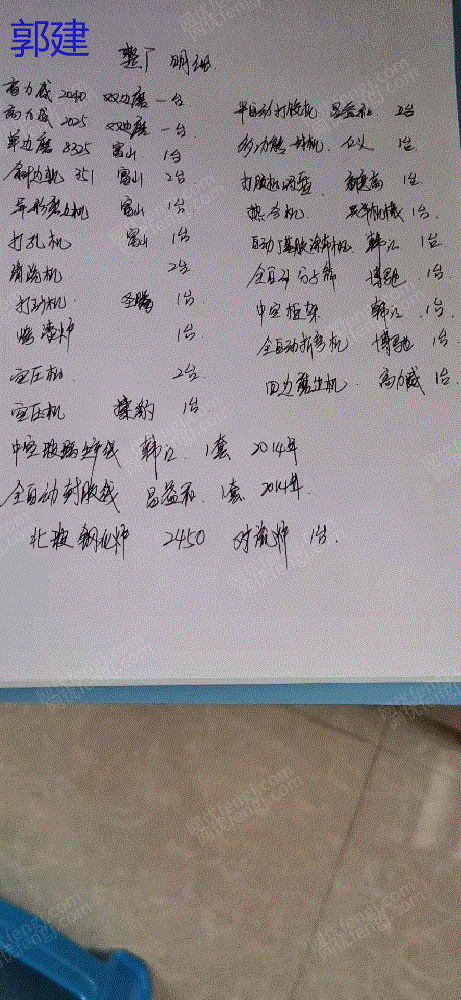 郭建
整厂明细
高力威 2040 双边磨 一台
高力威 2025 双边磨 一台
单边磨 8325 富山 1台
斜边机 351 富山 2台
异形磨边机 富山 1台
打孔机 富山 1台
清洗机 2台
打砂机 金腾 1台
1台
空压机 2台
空压机 1台
中空玻璃生产线 韩江 1套 2014年
全自动封胶线 昌益和 1套 2014年
北玻钢化炉 2450 对流炉 1台
半自动打胶机 昌益和 2台
多功能一体机 1台
打胶机 1台
热合机 1台
自动丁基胶涂布机 韩江 1台
全自动分子筛 博驰 1台
中空框架 韩江 1台
全自动折弯机 博驰 1台
四边磨边机 高力威 1台